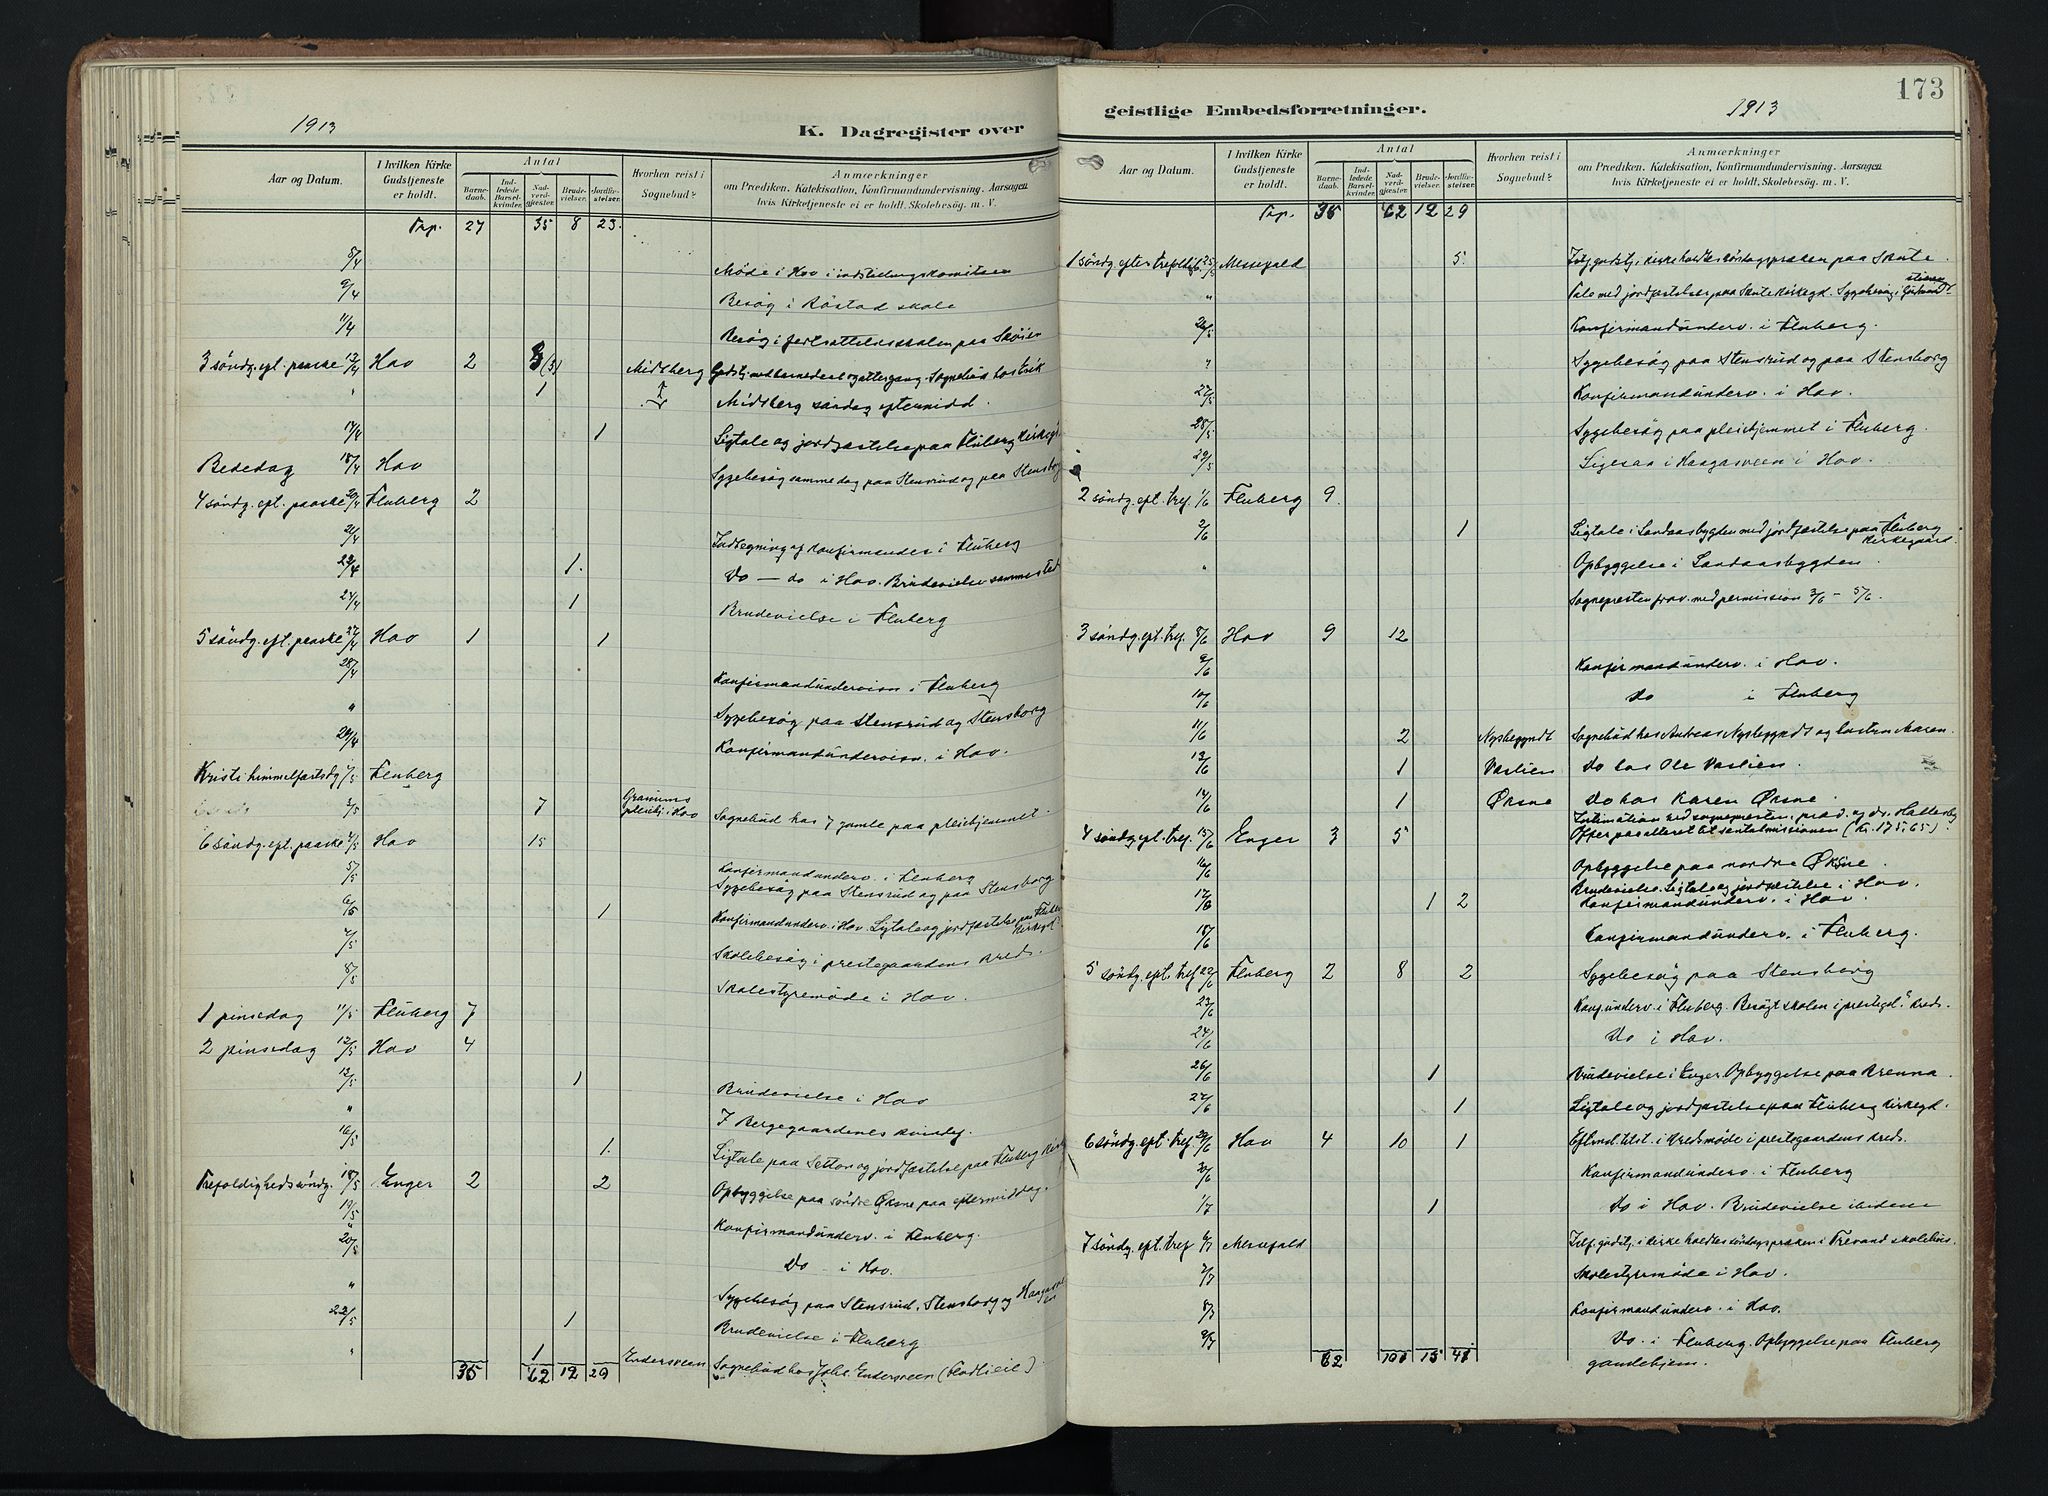 1913
K. Dagregister over
Aar og Datum.
I hvilken Kirke Gudstjeneste er holdt.
Antal
Barne-daab.
Ind-ledede Barsel-kvinder.
Nad-verd-gjester.
Brude-vielser.
Jordfæ-stelser.
Hvorhen reist i Sognebud?
Anmærkninger
om Prædiken. Katekisation, Konfirmandundervisning. Aarsagen
hvis Kirketjeneste ei er holdt. Skolebesög. m. V.
Trp. 27 35 8 23.
8/4 Möde i Hov i indstillingskomiteen
9/4 Besög i Röstad skole
11/4 Besög i fortsættelsesskolen paa Sköien
3 söndg. eft. paaske 13/4 Hov 2 3 (3) Midsberg Gudstj. med barnedaab og altergang. Sognebud hos
" 1 Midsberg söndag eftermidd.
17/4 1 Ligtale og jordfæstelse paa Fluberg kirkegd.
Bededag 18/4 Hov Sygebesög samme dag paa Stensrud og paa Stensborg
4 söndg. eft. paaske 20/4 Fluberg 2
21/4 Indtegning af konfirmander i Fluberg
22/4 1. Do — do i Hov. Brudevielse sammested
24/4 1 Brudevielse i Fluberg
5 söndg. eft. paaske 27/4 Hov 1 1
28/4 Konfirmandundervisn. i Fluberg
" Sygebesög paa Stensrud og Stensborg
29/4 Konfirmandundervisn. i Hov.
Kristi himmelfartsdg 1/5 Fluberg
3/5 7 Granums pleiehj. i Hov Sognebud hos 7 gamle paa pleiehjemmet.
6 söndg. eft. paaske 4/5 Hov 15
5/5 Konfirmandunderv. i Fluberg
Sygebesög paa Stensrud og paa Stensborg
6/5 1 Konfirmandunderv. i Hov. Ligtale og jordfæstelse paa Fluberg kirkegd.
7/5 Skolebesög i prestegaardens kreds.
8/5 Skolestyremöde i Hov.
1 pinsedag 11/5 Fluberg 7
2 pinsedag 12/5 Hov 4
13/5 1 Brudevielse i Hov
" I Bergegaardenes kvindef.
16/5 1. Ligtale paa Setton og jordfæstelse paa Fluberg
Trefoldighedssöndg. 18/5 Enger 2 2 Opbyggelse paa söndre Øksne paa eftermiddag.
19/5 Konfirmandunderv. i Fluberg.
20/5 Do i Hov.
" Sygebesög paa Stensrud, Stensborg og
22/5 1 Brudevielse i Fluberg
" 1 Endersveen Sognebud hos Johs. Endersveen (Fladlieie)
35 62 12 29
geistlige Embedsforretninger.
1913
173
Aar og Datum.
I hvilken Kirke Gudstjeneste er holdt.
Antal
Barne-daab.
Ind-ledede Barsel-kvinder.
Nad-verd-gjester.
Brude-vielser.
Jordfæ-stelser.
Hvorhen reist i Sognebud?
Anmærkninger
om Prædiken. Katekisation, Konfirmandundervisning. Aarsagen
hvis Kirketjeneste ei er holdt. Skolebesög. m. V.
Trp. 35 62 12 29
1 söndg. efter trefoldk. 25/5 Messefald 5. gudstj. i kirke holdtes söndagspræken paa Skute.
" Tale med jordfæstelser paa Skute kirkegd. Sygebesög i
26/5 Konfirmandunderv. i Fluberg.
" Sygebesög paa Stensrud og paa Stensborg
27/5 Konfirmandunderv. i Hov.
28/5 Sygebesög paa pleiehjemmet i Fluberg.
29/5 Ligesaa i Haagasveen i Hov.
2 söndg. eft. tref. 1/6 Fluberg 9.
2/6 1 Ligtale i Landaasbygden med jordfæstelse paa Fluberg kirkegaard.
" Opbyggelse i Landaasbygden.
Sognepresten frav. med permission 3/6 – 5/6.
3 söndg. eft. tref. 8/6 Hov 9 12
9/6 Konfirmandunderv. i Hov.
10/6 Do i Fluberg
11/6 2 Nysbegyndt Sognebud hos Andreas Nysbegyndt og hustru Maren.
13/6 1 Vaslien Do hos Ole Vaslien.
14/6 1 Øksne Do hos Karen Øksne.
4 söndg. eft. tref. 15/6 Enger 3 5
Offer paa alteret til santalmissionen (Kr. 175,65).
16/6 Opbyggelse paa nordre Øksne.
17/6 1 2 Brudevielse. Ligtale og jordfæstelse i Hov.
Konfirmandunderv. i Hov.
18/6 Konfirmandunderv. i Fluberg.
5 söndg. eft. tref 22/6 Fluberg 2 8 2 Sygebesög paa Stensborg
23/6 Konf.underv. i Fluberg. Besögt skolen i prestegd.s kreds.
24/6 Do i Hov.
26/6 1 Brudevielse i Enger. Opbyggelse paa Brenna.
27/6 1 Ligtale og jordfæstelse paa Fluberg kirkegd.
6 söndg. eft. tref. 29/6 Hov 4 10 1 Eftmd. tilst. i kredsmöde i prestegaardens kreds.
30/6 Konfirmandunderv. i Fluberg
1/7 1 Do i Hov. Brudevielse ibidem
7 söndg. eft. tref 6/7 Messefald gudstj. i kirke holdtes söndagspræken i Trevand skolehus.
7/7 Skolestyremöde i Hov.
8/7 Konfirmandunderv. i Hov.
9/7 Do. i Fluberg. Opbyggelse paa Fluberg gamlehjem.
62 101 15 41